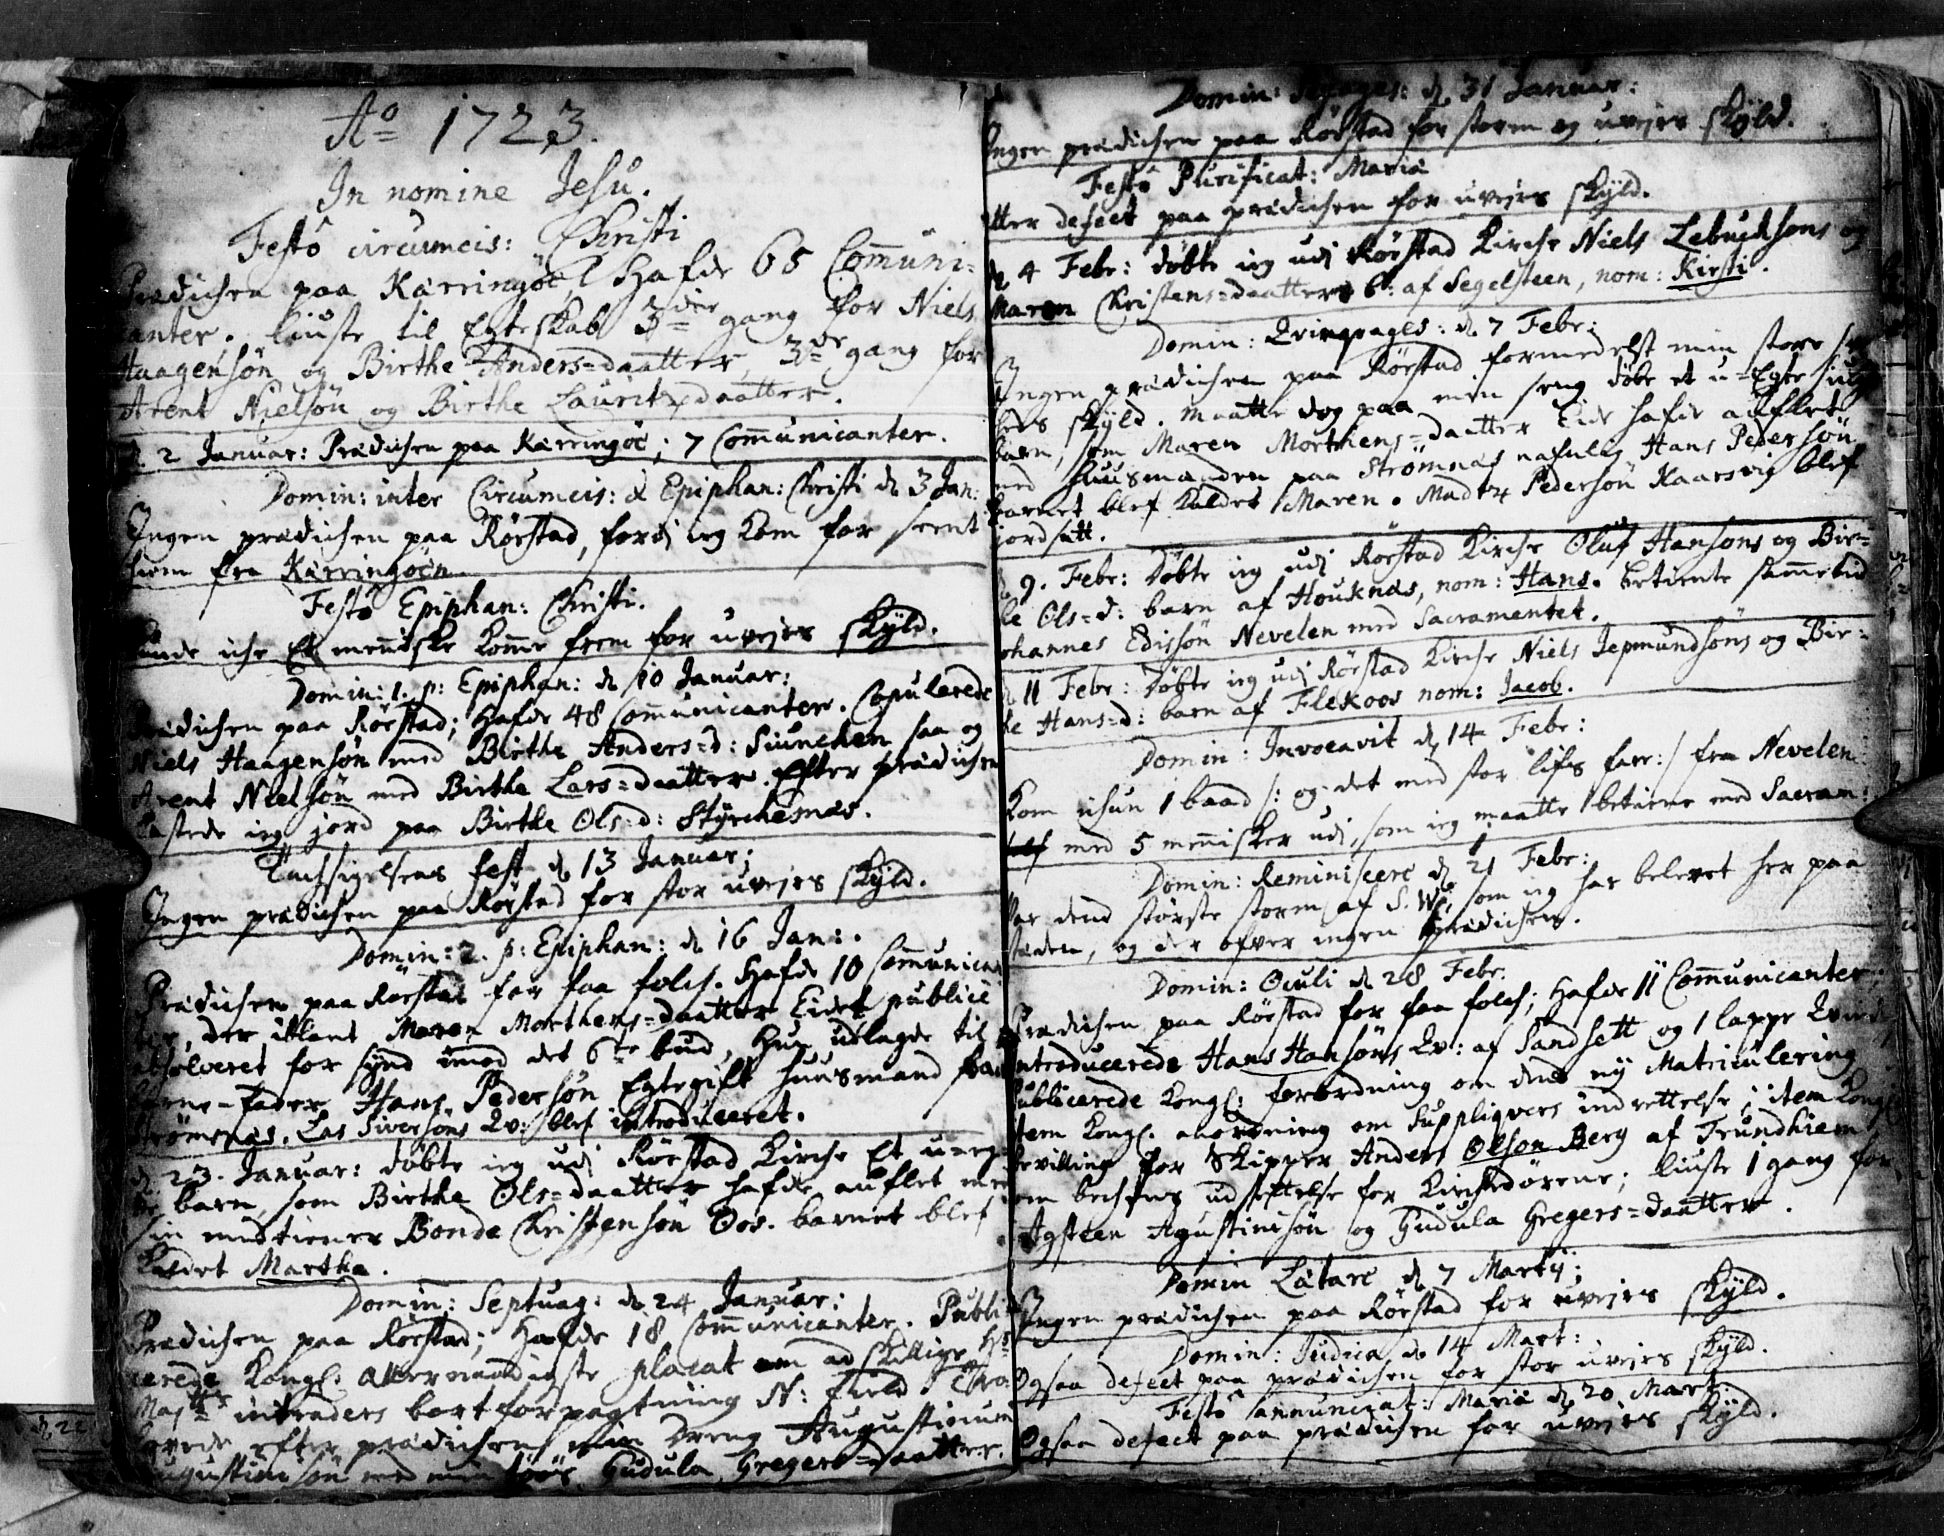 Aº 1723.
In nomine Jesu.
Festô circumcis: Christi
Prædichen paa Karringöe, Hafde 65 Com̅uni-
canter. liuste til Egteskab 3die gang for Niels
Haagensön og Birthe Anders=daatter, 3de gang for
Arent Nielsön og Birthe Lauritz daatter.
d. 2 Januar: Prædichen paa Karringöe; 7 Com̅unicanter.
Domin: inter Circumcis: & Epiphan: Christi d. 3 Jan:
Ingen prædichen paa Rörstad, fordi ieg kom for seent
hiem fra Karringöen.
Festô Epiphan: Christi.
Kunde iche Et men̅iske kom̅e frem for uvejrs skÿld.
Domin: 1. p: Epiphan: d. 10 Januar:
Prædichen paa Rörstad; Hafde 48 Com̅unicanter. Copulerede
Niels Haagensön med Birthe Anders=d: Siunchen saa og
Arent Nielsön med Birthe Lars=daatter. Efter prædichen
kastede ieg jord paa Birthe Ols=d: Stÿrchesnæs.
Tachsigelsens fest d. 13 Januar;
Ingen prædichen paa Rörstad for stor uvejrs skÿld.
Domin: 2. p: Epiphan: d. 16 Jan:.
Prædichen paa Rörstad for faa folch. Hafde 10 Com̅unican
ter, der iblant Maren Morthens=daatter Eidet publicè
absolveret for synd imod det 6te bud, Hun udlagde til
barne=fader Hans Pedersön Egtegift huusmand paa
Strömsnæs. Las Siversöns Qv: blef introduceret.
d. 23. Januar: döbte ieg udi Rörstad Kirche Et ueg-
te barn, som Birthe Ols=daatter hafde auflet med
sin medtiener Bonde Christensön Oos. barnet blef
kaldet Martha.
Domin: Septuag: d. 24 Januar:
Prædichen paa Rörstad; Hafde 18 Com̅unicanter. Publi
cerede Kongl. allernaadigste placat om adskillige Hs
Majtts intraders bortforpagtning N: field. Tro
lovede efter prædichen min dreng Augustinum
Augustinsön med min töös Gudula Gregers=daatter.
Domin: Sexages: d. 31 Januar:
Ingen prædichen paa Rörstad for storm og uvejrs skÿld.
Festô Purificat: Mariæ
Atter defect paa prædichen for uvejrs skÿld.
d. 4 Febr: döbte ieg udi Rörstad Kirche Niels Lebuchsöns og
Maren Christens=daatters b: af Segelsteen, nom: Kirsti.
Domin: Qvinqvages: d. 7 Febr:
Ingen prædichen paa Rörstad formedelst min store
heds skÿld. maatte dog paa min seng döbe et u=Egte
barn, som Maren Morthens=daatter Eide hafde auflet
med huusmanden paa Strömnæs nafnlig Hans Pedersön
barnet blef kaldet Maren. Madtz Pedersön Kaarsvig blef
jordsatt.
d. 9. Febr: döbte ieg udi Rörstad Kirche Oluf Hansöns og Bir-
te Ols=d: barn af Houknæs, nom: Hans. betiente sam̅etid
Johannes Edissön Nevelen med Sacramentet.
d. 11 Febr: döbte ieg udi Rörstad Kirche Niels Jepmundsöns og Bir-
te Hans=d: barn af Flekoos nom: Jacob.
Domin: Invocavit d. 14 Febr:
Kom ichun 1 baad /: og det med stor lifs fare:/ fra Nevelen
med 5 men̅isker udi, som ieg maatte betiene med Sacram:
Domin: Reminiscere d. 21 Febr:
Var dend störste storm af S. W. som ieg har belevet her paa
staden, og der ofver ingen prædichen.
Domin: Oculi d. 28 Febr:
Prædichen paa Rörstad for faa folch; Hafde 11 Com̅unicanter;
Introducerede Hans Hansöns Qv: af Sandsett og 1 lappe Qvinde
Publicerede Kongl: forordning om dend nÿ Matriculering
item Kongl. anordning om Suppliqvers indrettelse; item Kongl:
bevilling for Skipper Anders Olson Berg af Trundhiem
om bechens udsettelse for Kirchedörene; liuste 1 gang for
Agsteen Agustinsön og Gudula Gregers=daatter.
Domin Lætare d. 7 Martij;
Ingen prædichen paa Rörstad for uvejrs skÿld.
Domin: Judica d. 14 Mart:
Ogsaa defect paa prædichen for stor uvejrs skÿld.
Festô annunciat: Mariæ d. 20 Mart:
Ogsaa defect paa prædichen for uvejrs skÿld.